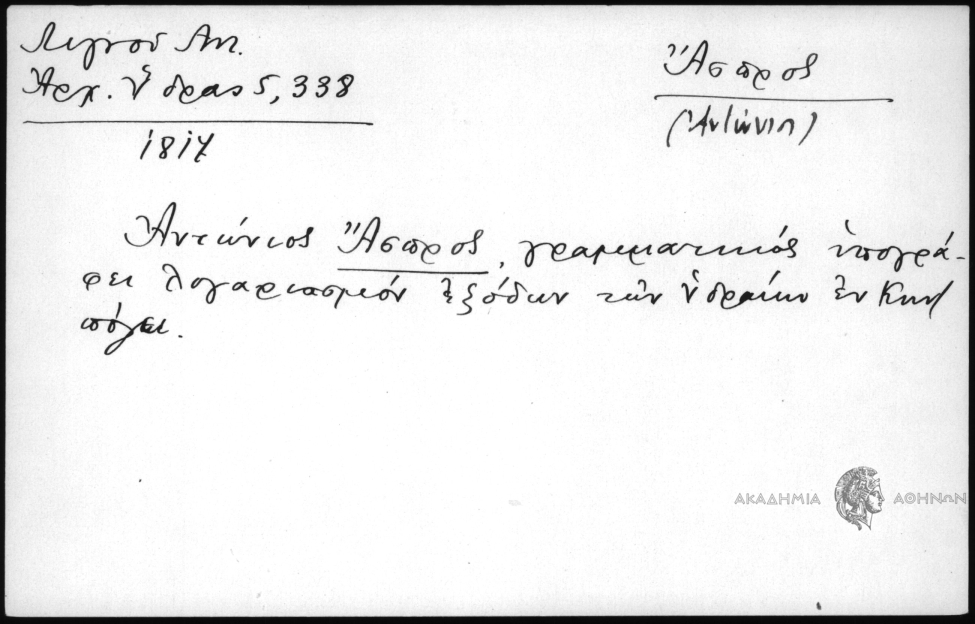 Λιγνού Αντ.
Ἀρχ. Ὕδρας 5, 338
1817
Ἄσπρος
(Ἀντώνιος)
Ἀντώνιος Ἄσπρος, γραμματικός ὑπογρά-
φει λογαριασμόν ἐξόδων τῶν Ὑδραίων ἐν Κων/
πόλει.
ΑΚΑΔΗΜΙΑ ΑΘΗΝΩΝ